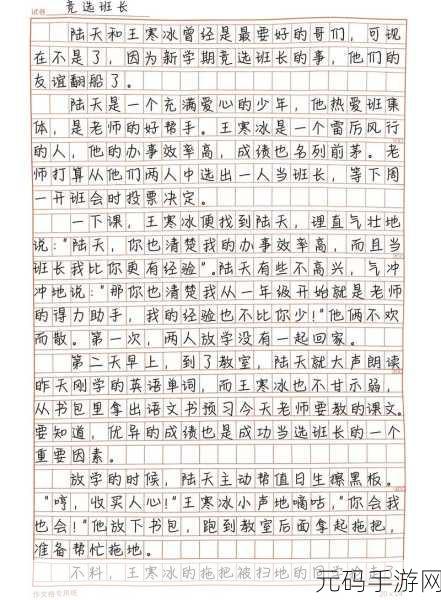 试卷 竞选班长
陆天和王寒冰曾经是最要好的哥们，可现
在不是了，因为新学期竞选班长的事，他们的
友谊翻船了。
陆天是一个充满爱心的少年，他热爱班集
体，是老师的好帮手。王寒冰是一个雷厉风行
的人，他的办事效率高，成绩也名列前茅。老
师打算从他们两人中选出一人当班长，等下周
一开班会时投票决定。
一下课，王寒冰便找到陆天，理直气壮地
说："陆天，你也清楚我的办事效率高，而且当
班长我比你更有经验"。陆天有些不高兴，气冲
冲地说："那你也清楚我从一年级开始就是老师
的得力助手，我的经验也不比你少！"他俩不欢
而散。第一次，两人放学没有一起回家。
第二天早上，到了教室，陆天就大声朗读
昨天刚学的英语单词，而王寒冰也不甘示弱，
从书包里拿出语文书预习今天老师要教的课文。
要知道，优异的成绩也是成功当选班长的一个
重要因素。
放学的时候，陆天主动帮值日生擦黑板。
"哼，收买人心！"王寒冰小声地嘀咕，"你会我
也会！"他放下书包，跑到教室后面拿起拖把，
准备帮忙拖地。
不料，王寒冰的拖把被扫地的同学
作文格专用纸
元码手游网